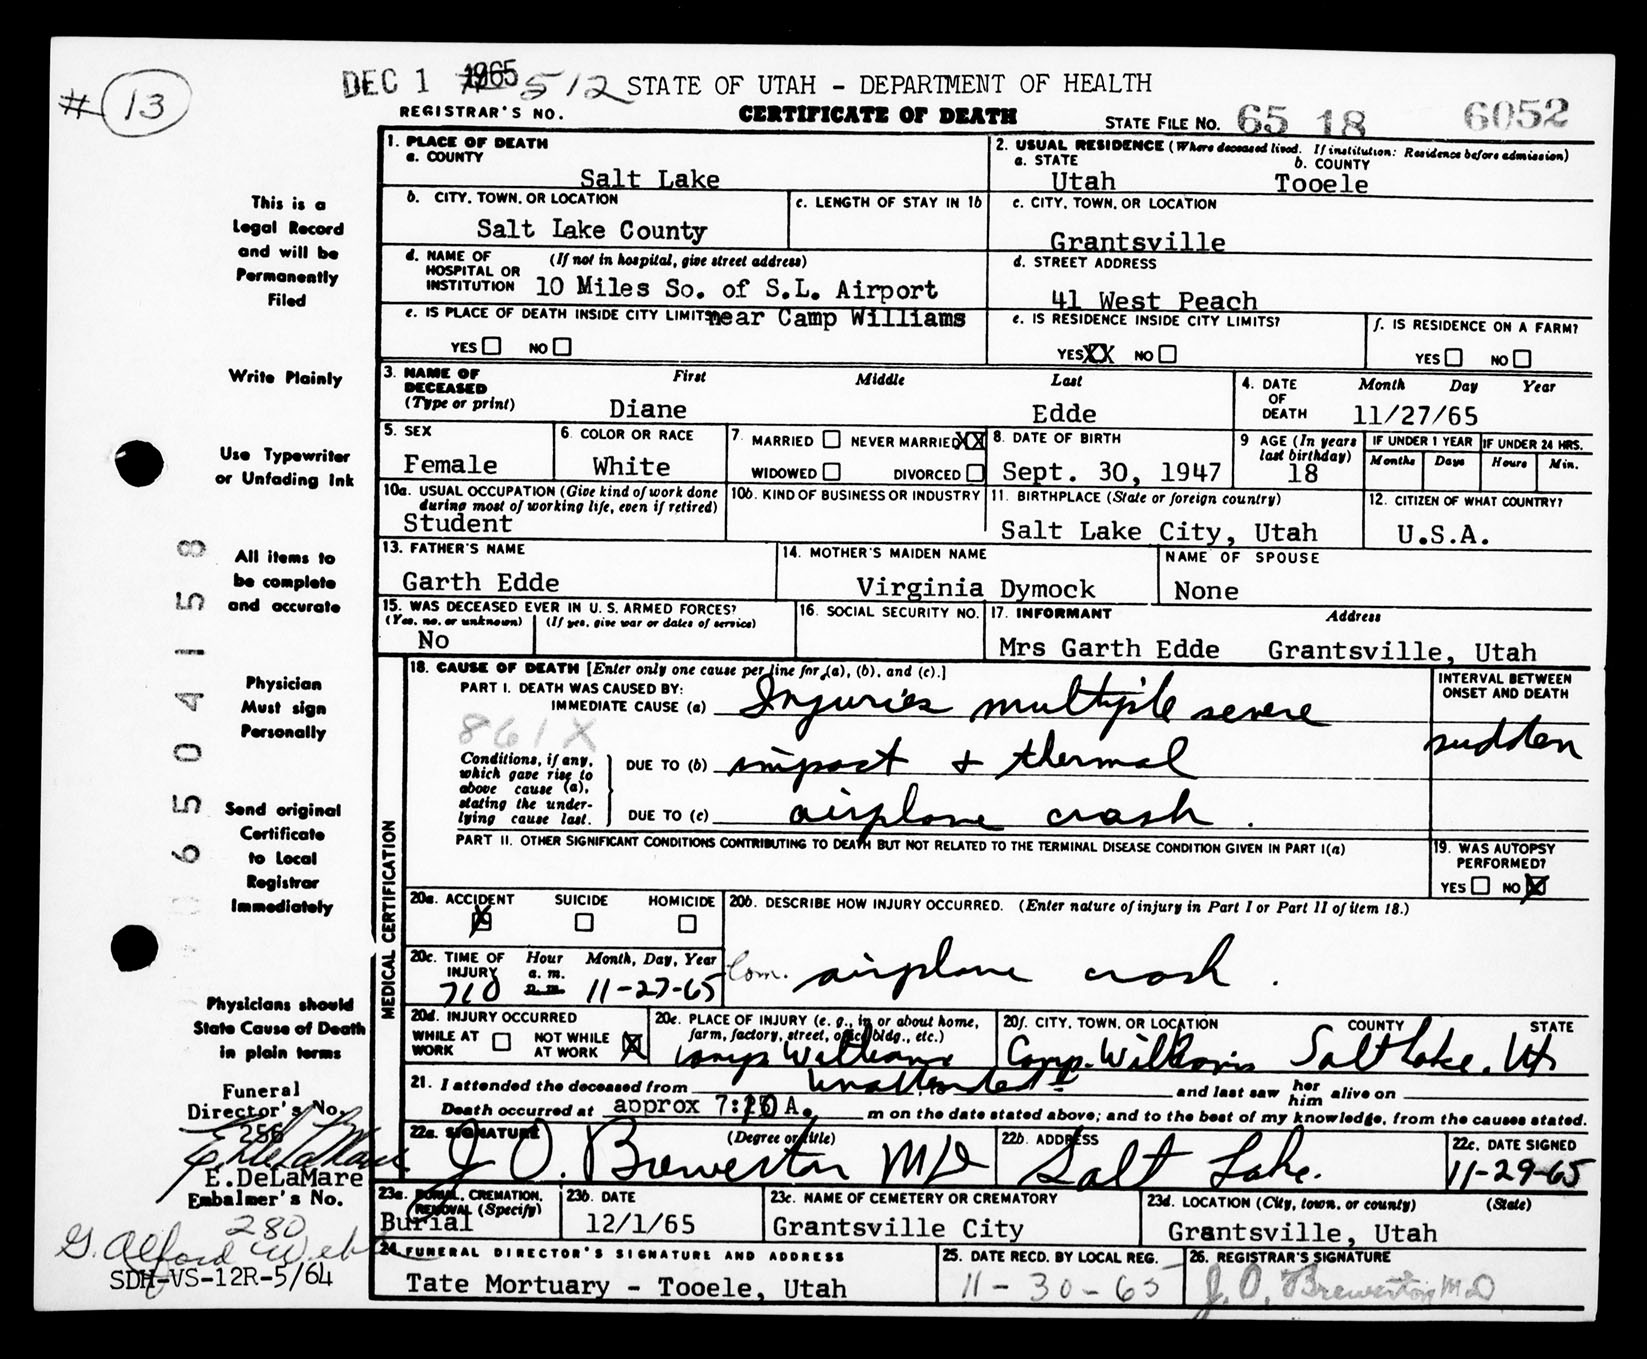 # 13
DEC 1 1965 512 STATE OF UTAH - DEPARTMENT OF HEALTH
REGISTRAR'S NO. CERTIFICATE OF DEATH STATE FILE NO. 65 18 6052
This is a
Legal Record
and will be
Permanently
Filed
Write Plainly
Use Typewriter
or Unfading Ink
All items to
be complete
and accurate
Physician
Must sign
Personally
Send original
Certificate
to Local
Registrar
Immediately
Physicians should
State Cause of Death
in plain terms
Funeral
Director's No.
256
E. DeLaMare
E.DeLaMare
Embalmer's No.
280
G. Alford
SDH-VS-12R-5/64
0650415 8
1. PLACE OF DEATH
a. COUNTY
Salt Lake
2. USUAL RESIDENCE (Where deceased lived. If institution: Residence before admission)
a. STATE b. COUNTY
Utah Tooele
b. CITY, TOWN, OR LOCATION
Salt Lake County
c. LENGTH OF STAY IN 1b
c. CITY, TOWN, OR LOCATION
Grantsville
d. NAME OF (If not in hospital, give street address)
HOSPITAL OR
INSTITUTION 10 Miles So. of S.L. Airport
d. STREET ADDRESS
41 West Peach
e. IS PLACE OF DEATH INSIDE CITY LIMITS near Camp Williams
YES NO
e. IS RESIDENCE INSIDE CITY LIMITS?
YES XX NO
f. IS RESIDENCE ON A FARM?
YES NO
3. NAME OF First Middle Last
DECEASED
(Type or print) Diane Edde
4. DATE Month Day Year
OF
DEATH 11/27/65
5. SEX
Female
6. COLOR OR RACE
White
7. MARRIED NEVER MARRIED XX
WIDOWED DIVORCED
8. DATE OF BIRTH
Sept. 30, 1947
9 AGE (In years
last birthday)
18
IF UNDER 1 YEAR IF UNDER 24 HRS.
Months Days Hours Min.
10a. USUAL OCCUPATION (Give kind of work done
during most of working life, even if retired)
Student
10b. KIND OF BUSINESS OR INDUSTRY
11. BIRTHPLACE (State or foreign country)
Salt Lake City, Utah
12. CITIZEN OF WHAT COUNTRY?
U.S.A.
13. FATHER'S NAME
Garth Edde
14. MOTHER'S MAIDEN NAME
Virginia Dymock
NAME OF SPOUSE
None
15. WAS DECEASED EVER IN U.S. ARMED FORCES?
(Yes, no, or unknown) (If yes, give war or dates of service)
No
16. SOCIAL SECURITY NO.
17. INFORMANT Address
Mrs Garth Edde Grantsville, Utah
MEDICAL CERTIFICATION
18. CAUSE OF DEATH [Enter only one cause per line for (a), (b), and (c).]
PART I. DEATH WAS CAUSED BY:
IMMEDIATE CAUSE (a) Injuries multiple severe
861X
Conditions, if any,
which gave rise to
above cause (a),
stating the under-
lying cause last.
DUE TO (b) impact + thermal
DUE TO (c) airplane crash.
INTERVAL BETWEEN
ONSET AND DEATH
sudden
PART II. OTHER SIGNIFICANT CONDITIONS CONTRIBUTING TO DEATH BUT NOT RELATED TO THE TERMINAL DISEASE CONDITION GIVEN IN PART I(a)
19. WAS AUTOPSY
PERFORMED?
YES NO X
20a. ACCIDENT SUICIDE HOMICIDE
X
20b. DESCRIBE HOW INJURY OCCURRED. (Enter nature of injury in Part I or Part II of item 18.)
Com. airplane crash.
20c. TIME OF Hour Month, Day, Year
INJURY a. m.
710 p. m. 11-27-65
20d. INJURY OCCURRED
WHILE AT NOT WHILE
WORK AT WORK X
20e. PLACE OF INJURY (e. g., in or about home,
farm, factory, street, office bldg., etc.)
Camp Williams
20f. CITY, TOWN, OR LOCATION COUNTY STATE
Camp Williams Salt Lake. Ut
21. I attended the deceased from unattended to and last saw her him alive on
Death occurred at approx 7:10 A. m on the date stated above; and to the best of my knowledge, from the causes stated.
22a. SIGNATURE (Degree or title)
J O. Brewerton MD
22b. ADDRESS
Salt Lake.
22c. DATE SIGNED
11-29-65
23a. BURIAL, CREMATION,
REMOVAL (Specify)
Burial
23b. DATE
12/1/65
23c. NAME OF CEMETERY OR CREMATORY
Grantsville City
23d. LOCATION (City, town, or county) (State)
Grantsville, Utah
24. FUNERAL DIRECTOR'S SIGNATURE AND ADDRESS
Tate Mortuary - Tooele, Utah
25. DATE RECD. BY LOCAL REG.
11-30-65
26. REGISTRAR'S SIGNATURE
J. O. Brewerton MD